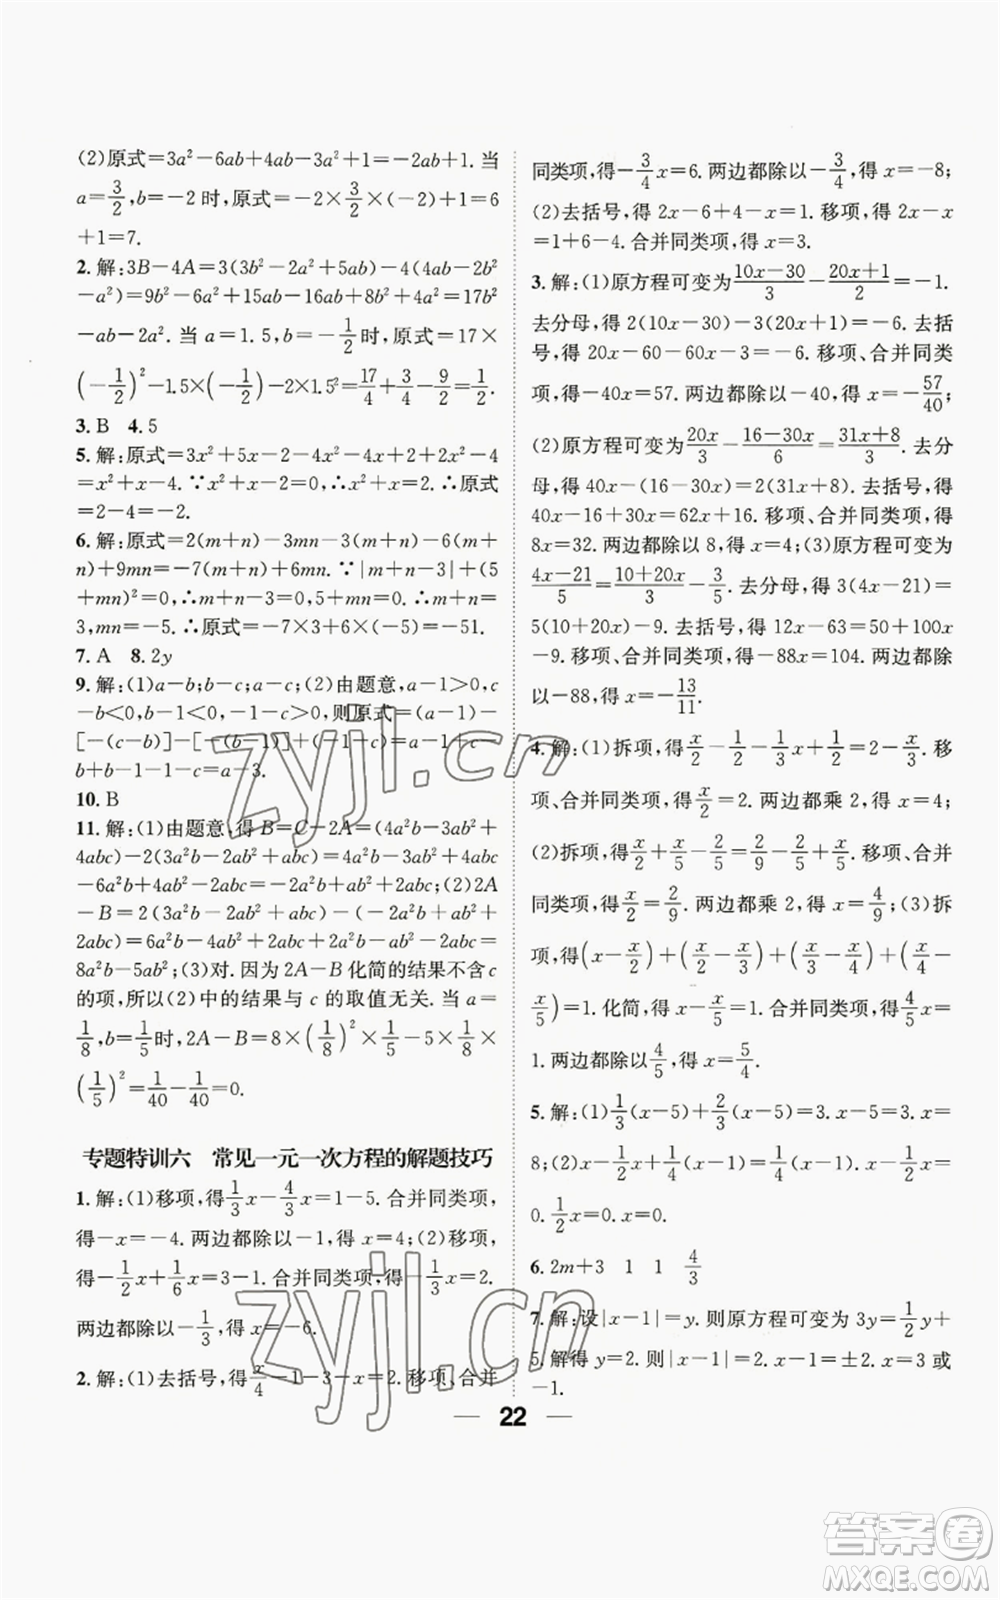 (2)原式=3a²-6ab+4ab-3a²+1=-2ab+1. 当
a=3/2,b=-2时,原式=-2×3/2×(-2)+1=6
+1=7.
2. 解:3B-4A=3(3b²-2a²+5ab)-4(4ab-2b²
-a²)=9b²-6a²+15ab-16ab+8b²+4a²=17b²
-ab-2a². 当 a=1.5,b=-1/2时,原式=17×
(-1/2)²-1.5×(-1/2)-2×1.5²=17/4+3/4-9/2=1/2.
3. B 4. 5
5. 解:原式=3x²+5x-2-4x-2x²+2x²-4
=x²+x-4. ∵x²+x-2=0,∴x²+x=2.∴原式
=2-4=-2.
6. 解:原式=2(m+n)-3mn-3(m+n)-6(m+
n)+9mn=-7(m+n)+6mn. ∵|m+n-3|+(5
+mn)²=0,∴m+n-3=0,5+mn=0,∴m+n=
3,mn=-5. ∴原式=-7×3+6×(-5)=-51.
7. A 8. 2y
9. 解:(1)a-b;b-c;a-c;(2)由题意,a-1>0,c
-b<0,b-1<0,-1-c>0,则原式=(a-1)-
[-(c-b)]-[-(b-1)]+(-1-c)=a-1+c-
b+b-1-1-c=a-3.
10. B
11. 解:(1)由题意,得 B=C-2A=(4a²b-3ab²+
4abc)-2(3a²b-2ab²+abc)=4a²b-3ab²+4abc
-6a²b+4ab²-2abc=-2a²b+ab²+2abc;(2)2A
-B=2(3a²b-2ab²+abc)-(-2a²b+ab²+
2abc)=6a²b-4ab²+2abc+2a²b-ab²-2abc=
8a²b-5ab²;(3)对. 因为 2A-B 化简的结果不含 c
的项,所以(2)中的结果与 c 的取值无关. 当 a=
1/8,b=1/5时,2A-B=8×(1/8)²×1/5-5×1/8×
(1/5)²=1/40-1/40=0.
专题特训六 常见一元一次方程的解题技巧
1. 解:(1)移项,得1/3x-4/3x=1-5. 合并同类项,
得-x=-4. 两边都除以-1,得 x=4;(2)移项,
得-1/2x+1/6x=3-1. 合并同类项,得-1/3x=2.
两边都除以-1/3,得 x=-6.
2. 解:(1)去括号,得x/4-1-3-x=2. 移项、合并
同类项,得-3/4x=6. 两边都除以-3/4,得 x=-8;
(2)去括号,得 2x-6+4-x=1. 移项,得 2x-x
=1+6-4. 合并同类项,得 x=3.
3. 解:(1)原方程可变为(10x-30)/3-(20x+1)/2=-1.
去分母,得 2(10x-30)-3(20x+1)=-6. 去括
号,得 20x-60-60x-3=-6. 移项、合并同类
项,得-40x=57. 两边都除以-40,得 x=-57/40;
(2)原方程可变为20x/3-(16-30x)/6=(31x+8)/3. 去分
母,得 40x-(16-30x)=2(31x+8). 去括号,得
40x-16+30x=62x+16. 移项、合并同类项,得
8x=32. 两边都除以 8,得 x=4;(3)原方程可变为
(4x-21)/5=(10+20x)/3-3/5. 去分母,得 3(4x-21)=
5(10+20x)-9. 去括号,得 12x-63=50+100x
-9. 移项、合并同类项,得-88x=104. 两边都除
以-88,得 x=-13/11.
4. 解:(1)拆项,得x/2-1/2-1/3x+1/2=2-x/3. 移
项、合并同类项,得x/2=2. 两边都乘 2,得 x=4;
(2)拆项,得x/2+x/5-2/5=2/9-2/5+x/5. 移项、合并
同类项,得x/2=2/9. 两边都乘 2,得 x=4/9;(3)拆
项,得(x-x/2)+(x/2-x/3)+(x/3-x/4)+(x/4-
x/5)=1. 化简,得 x-x/5=1. 合并同类项,得4/5x=
1. 两边都除以4/5,得 x=5/4.
5. 解:(1)1/3(x-5)+2/3(x-5)=3. x-5=3. x=
8;(2)1/2x+1/4(x-1)=1/4(x-1). 1/2x=
0. 1/2x=0. x=0.
6. 2m+3 1 1 4/3
7. 解:设|x-1|=y. 则原方程可变为 3y=1/2y+
5. 解得 y=2. 则|x-1|=2. x-1=±2. x=3 或
-1.
22
zyjl.cn
zyjl.cn
答案圈
MXQE.COM